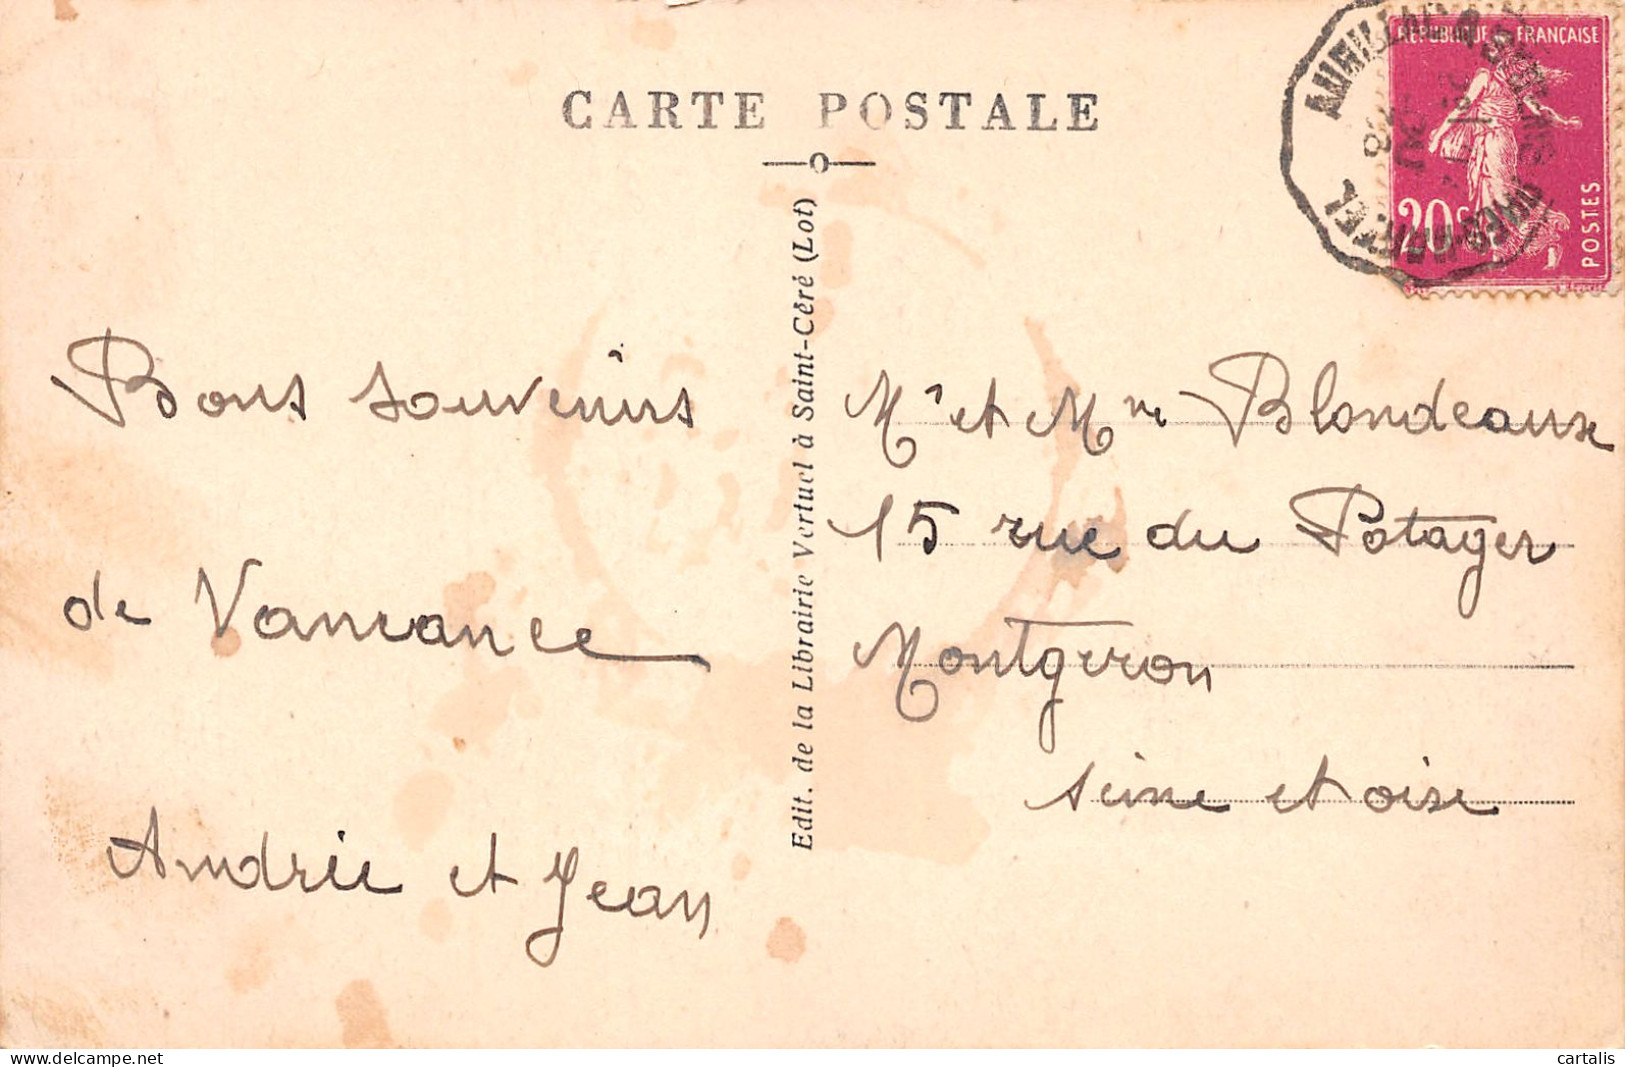 CARTE POSTALE
RÉPUBLIQUE FRANÇAISE
20c
POSTES
Bons souvenirs
de Vancance
Andrée et Jean
Edit. de la Librairie Vertuel à Saint-Céré (Lot)
Mr et Mme Blondeaux
15 rue du Potager
Montgeron
Seine et oise
cartalis